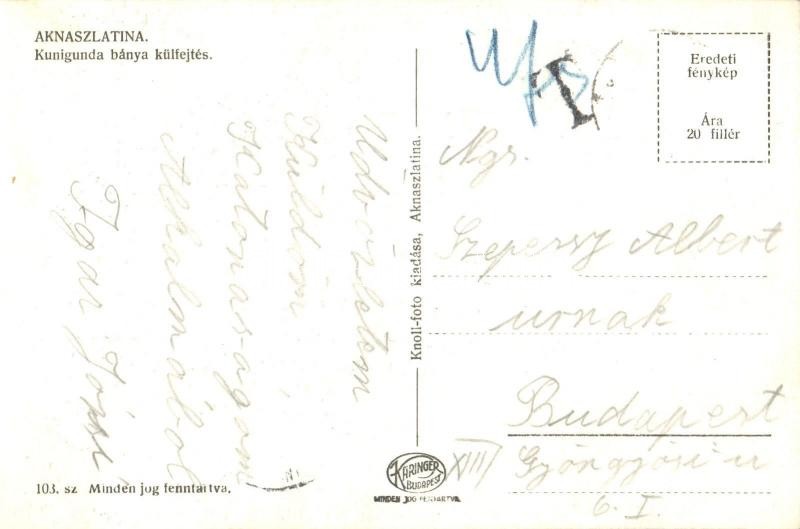 AKNASZLATINA.
Kunigunda bánya külfejtés.
Udvözletem
Küldöm
Katonaságom
Alkalmából
103. sz Minden jog fenntartva.
Knoll-foto kiadása, Aknaszlatina.
KARINGER
BUDAPEST
MINDEN JOG FENTARTVA
T
Eredeti
fénykép
Ára
20 fillér
Ngs.
Albert
urnak
Budapest
XIII Gyöngyösi u
6. I.